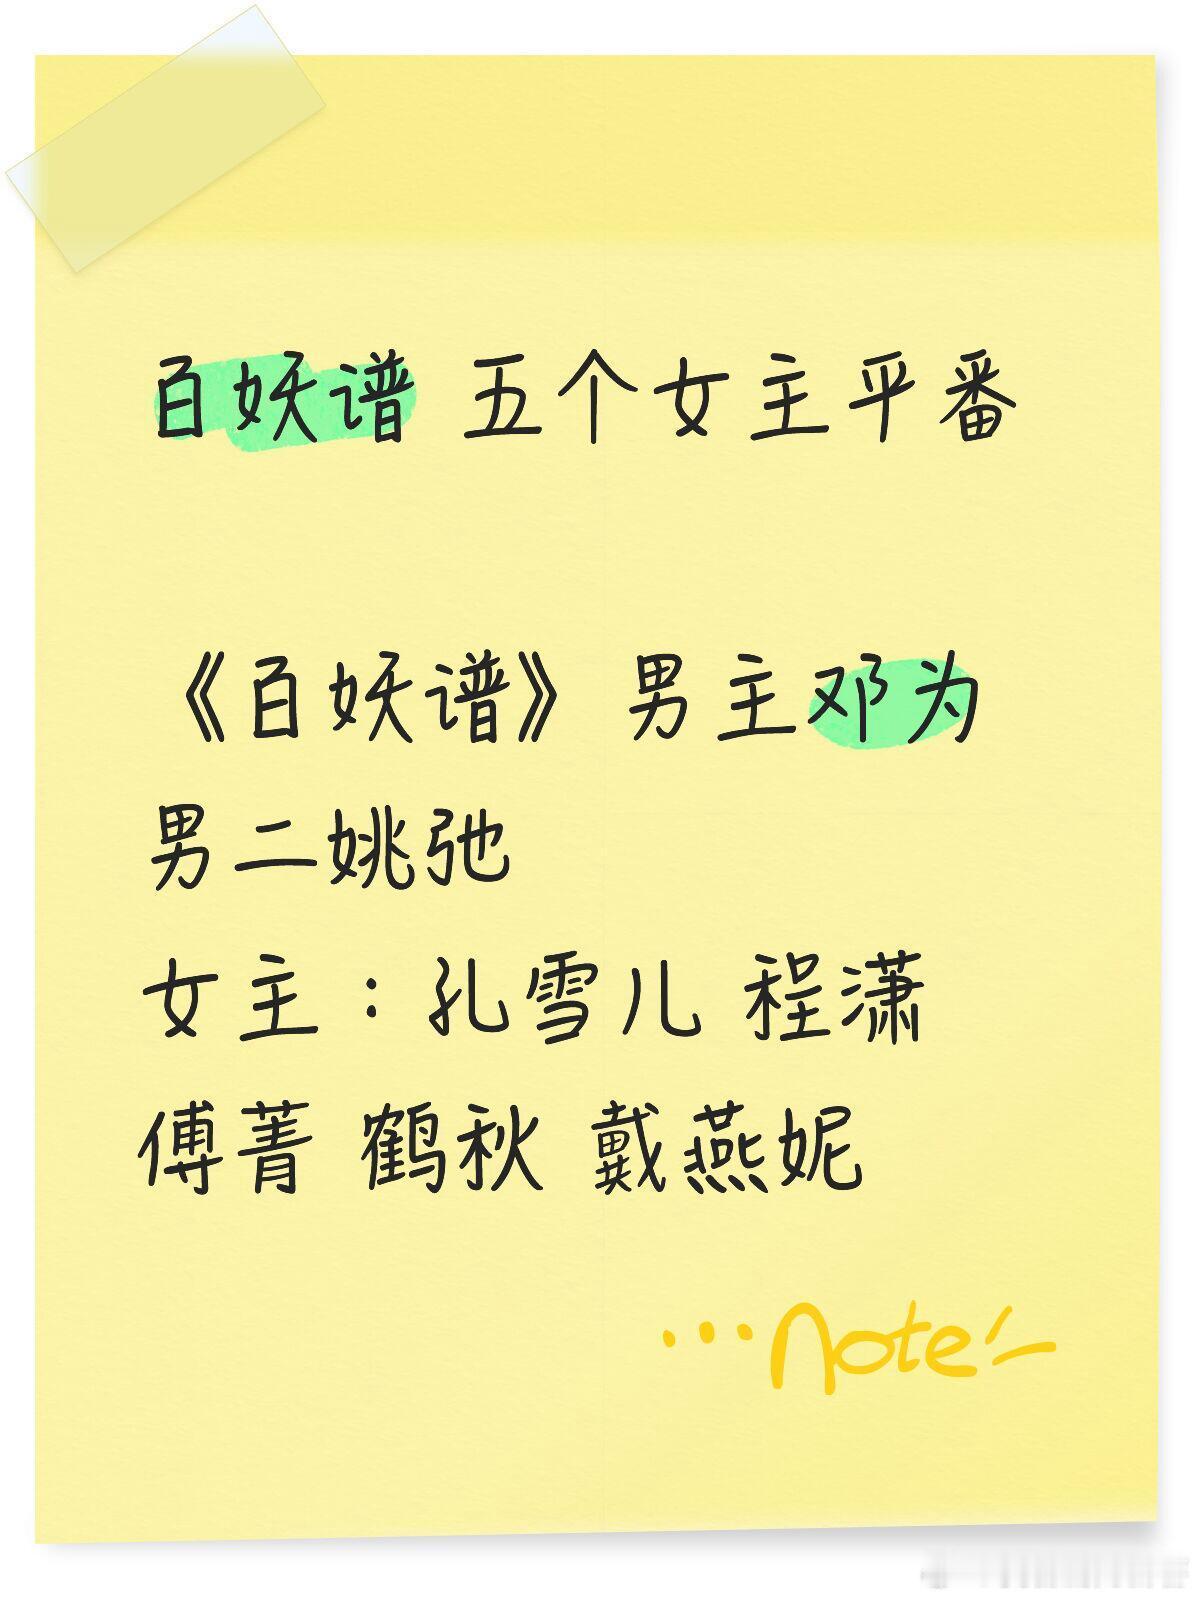 百妖谱 五个女主平番
《百妖谱》男主邓为
男二姚弛
女主：孔雪儿 程潇
傅菁 鹤秋 戴燕妮
...note